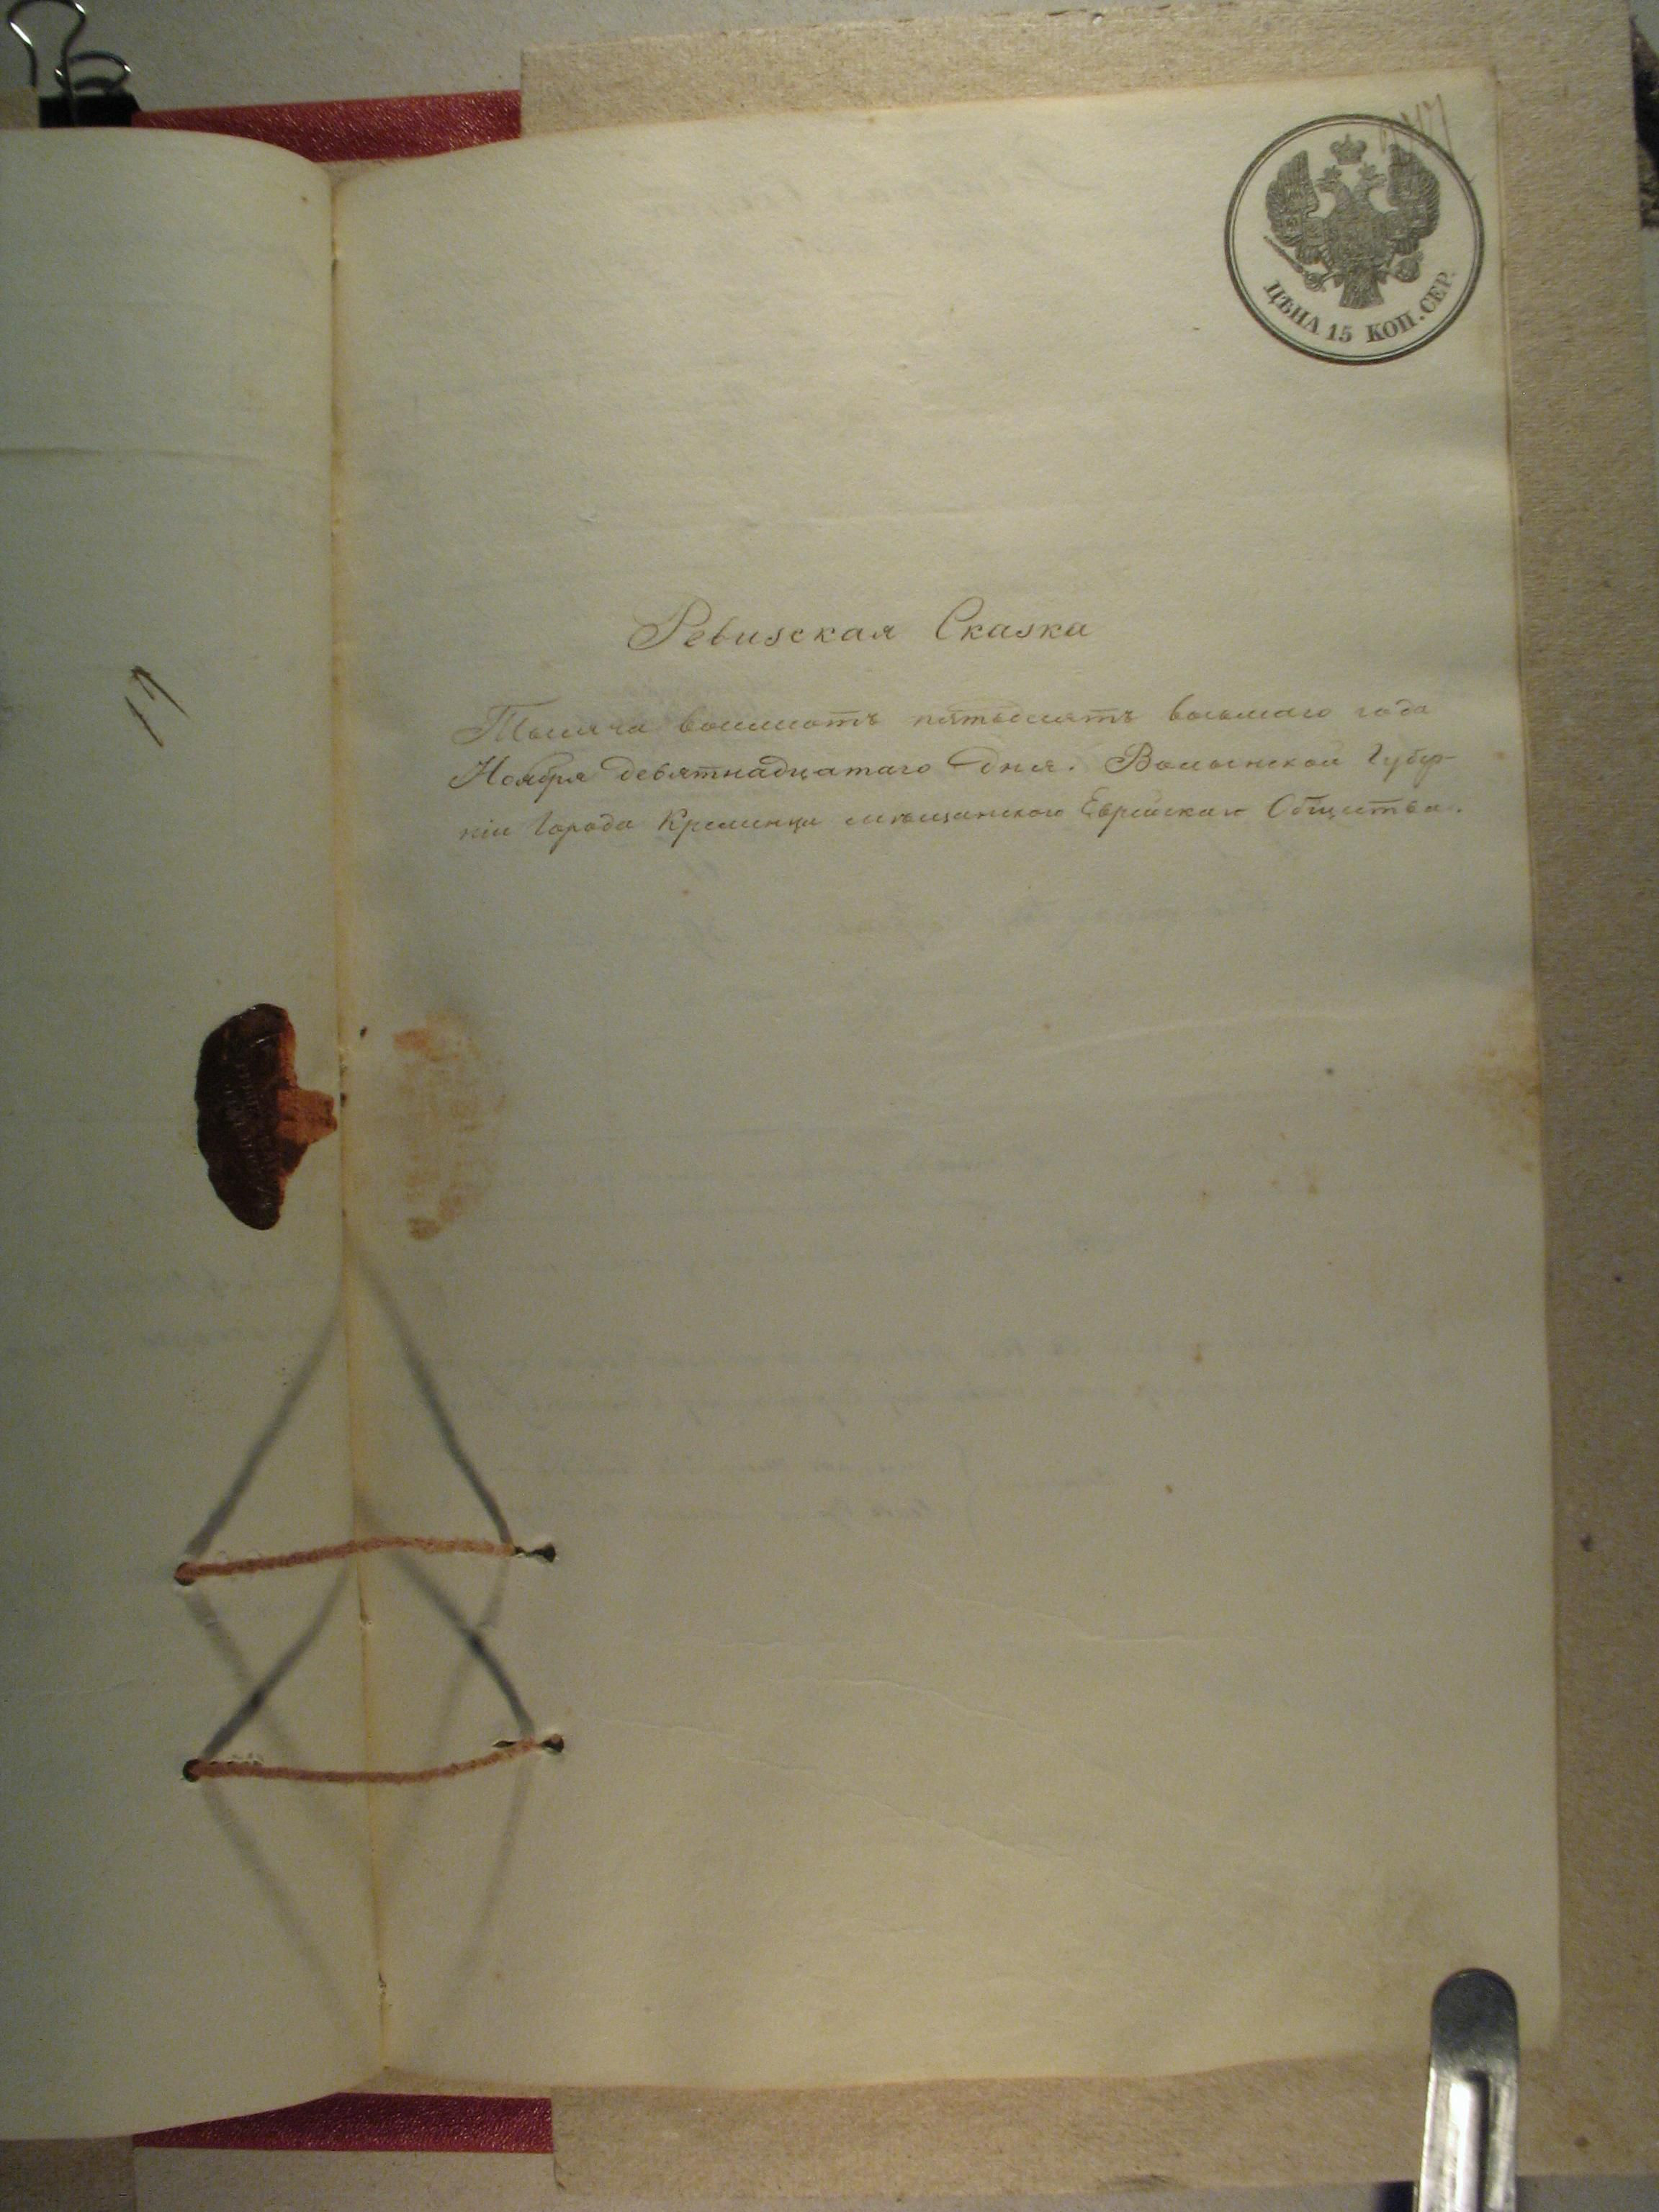 ЦѢНА 15 КОП. СЕР.
Ревизская Сказка
Тысяча восимсотъ пятьдесятъ восьмаго года
Ноября девятнадцатаго дня. Волынской Губер-
ніи Города Кременца мѣщанского Еврейскаго Общества.